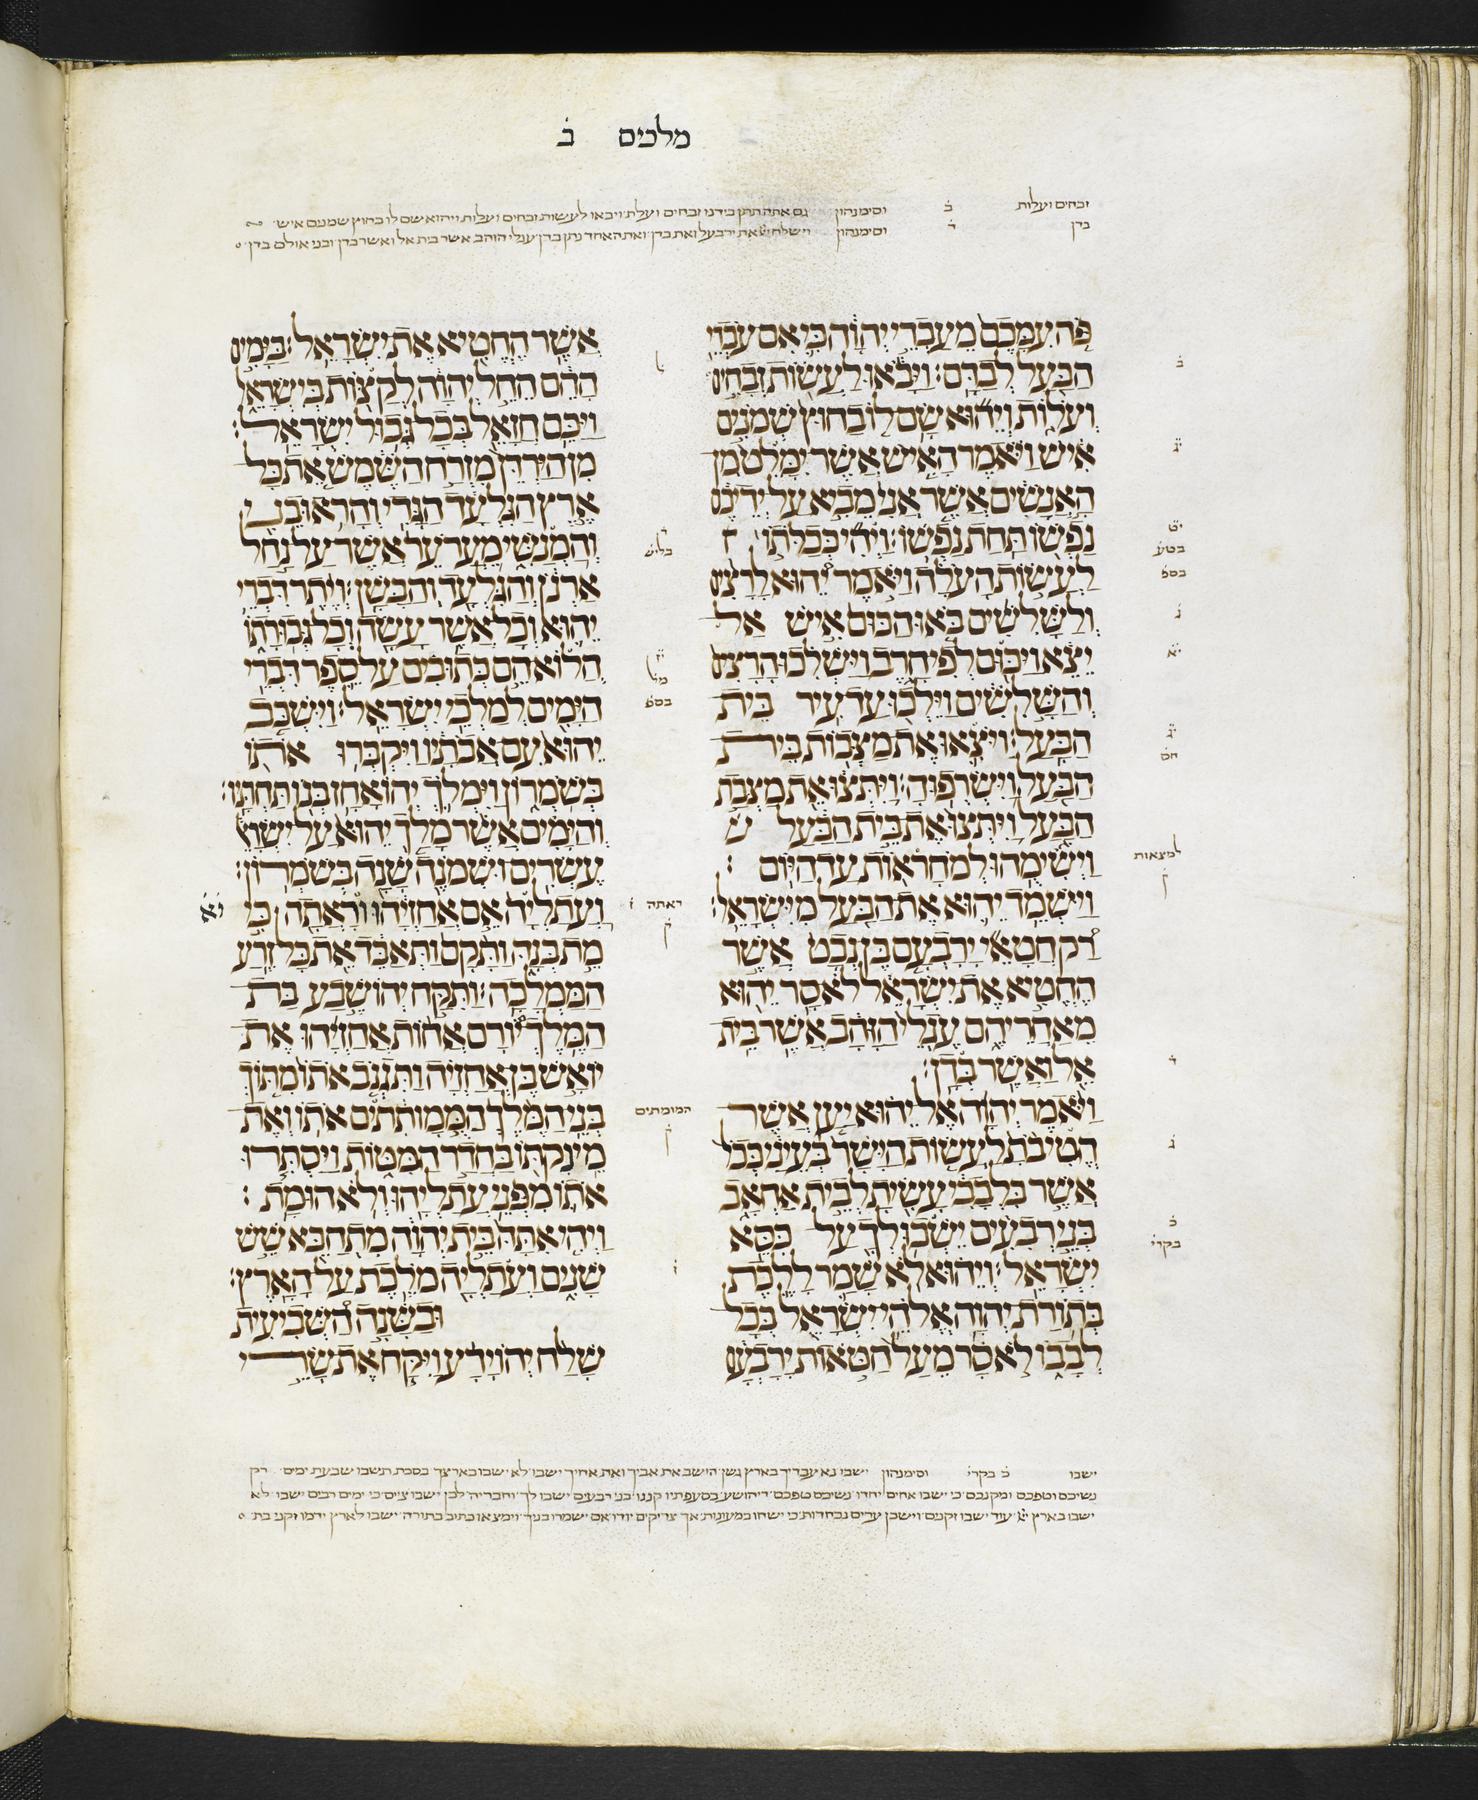 מלכים ב
זבחים ועלות ב וסימנהון גם אתה תתן בידנו זבחים ועלת ויבאו לעשות זבחים ועלות ויהוא שם לו בחוץ שמנים איש
בדן ד וסימנהון וישלח את ירבעל ואת בדן ואת האחד נתן בדן עגלי הזהב אשר בית אל ואשר בדן ובני אולם בדן
פה עמכם מעבדי יהוה כי אם עבדי
הבעל לבדם ויבאו לעשות זבחים
ועלות ויהוא שם לו בחוץ שמנים
איש ויאמר האיש אשר ימלט מן
האנשים אשר אני מביא על ידיכם
נפשו תחת נפשו ויהי ככלתו
לעשות העלה ויאמר יהוא לרצים
ולשלשים באו הכום איש אל
יצא ויכום לפי חרב וישלכו הרצים
והשלשים וילכו עד עיר בית
הבעל ויצאו את מצבות בית
הבעל וישרפוה ויתצו את מצבת
הבעל ויתצו את בית הבעל
וישימהו למחראות עד היום
וישמד יהוא את הבעל מישראל
רק חטאי ירבעם בן נבט אשר
החטיא את ישראל לא סר יהוא
מאחריהם עגלי הזהב אשר בית
אל ואשר בדן
ויאמר יהוה אל יהוא יען אשר
הטיבת לעשות הישר בעיני ככל
אשר בלבבי עשית לבית אחאב
בני רבעים ישבו לך על כסא
ישראל ויהוא לא שמר ללכת
בתורת יהוה אלהי ישראל בכל
לבבו לא סר מעל חטאות ירבעם
ב
יג
יט
בטע
בספ
ג
יא
יג
חס
למצאות
ק
ד
ג
ב
בקרי
אשר החטיא את ישראל בימים
ההם החל יהוה לקצות בישראל
ויכם חזאל בכל גבול ישראל
מן הירדן מזרח השמש את כל
ארץ הגלעד הגדי והראובני
והמנשי מערער אשר על נחל
ארנן והגלעד והבשן ויתר דברי
יהוא וכל אשר עשה וכל גבורתו
הלוא הם כתובים על ספר דברי
הימים למלכי ישראל וישכב
יהוא עם אבתיו ויקברו אתו
בשמרון וימלך יהואחז בנו תחתיו
והימים אשר מלך יהוא על ישראל
עשרים ושמנה שנה בשמרון
ועתליה אם אחזיהו וראתה כי
מת בנה ותקם ותאבד את כל זרע
הממלכה ותקח יהושבע בת
המלך יורם אחות אחזיהו את
יואש בן אחזיה ותגנב אתו מתוך
בני המלך הממותתים אתו ואת
מינקתו בחדר המטות ויסתרו
אתו מפני עתליהו ולא הומת
ויהי אתה בית יהוה מתחבא שש
שנים ועתליה מלכת על הארץ
ובשנה השביעית
שלח יהוידע ויקח את שרי
ל
בליש
מל
בספ
ראתה
ק
המומתים
ק
יא
ישבו ב בקרי וסימנהון ישבו נא עבדיך בארץ גשן הושב את אביך ואת אחיך ישבו לא ישבו בארצך בסכת תשבו שבעת ימים רק
נשיכם וטפכם ומקנכם כי ישבו אחים יחדו נשיכם טפכם דיהושע בסעפתיו קננו בני רבעים ישבו לך וחבריה לכן ישבו ציים כי ימים רבים ישבו לא
ישבו בארץ עוד ישבו זקנים וישכן ערים נכחדות כי ישחו במעונות אך צדיקים יודו אם ישמרו בניך וימצאו כתוב בתורה ישבו לארץ ידמו זקני בת